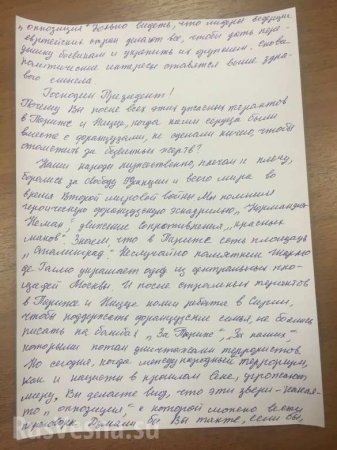 „оппозиция". Больно видеть, что лидеры ведущих
европейских стран делают все, чтобы дать пере-
дышку боевикам и укрепить их группы. Снова
политические интересы ставятся выше здра-
вого смысла.
Господин Президент!
Почему Вы после всех этих ужасных терактов
в Париже и Ницце, когда наши сердца были
вместе с французами, не сделали ничего, чтобы
отомстить за безвинных жертв?
Наши народы мужественно, плечом к плечу,
боролись за свободу Франции и всего мира во
время Второй мировой войны. Мы помним
героическую французскую эскадрилью „Нормандия-
Неман", движение Сопротивления, „красных
маков". Знаем, что в Париже есть площадь
„Сталинград". Неслучайно памятник Шарлю
де Голлю украшает одну из центральных пло-
щадей Москвы. И после страшных терактов
в Париже и Ницце наши ребята в Сирии,
чтобы поддержать французские семьи, не боялись
писать на бомбах „За Париж", „За наших",
которыми потом уничтожали террористов.
Но сегодня, когда международный терроризм,
как и нацисты в прошлом веке, угрожают
миру, Вы делаете вид, что эти звери - какая-
то „оппозиция", с которой можно вести
переговоры. Думали бы Вы также, если бы,
Rusvesna.su